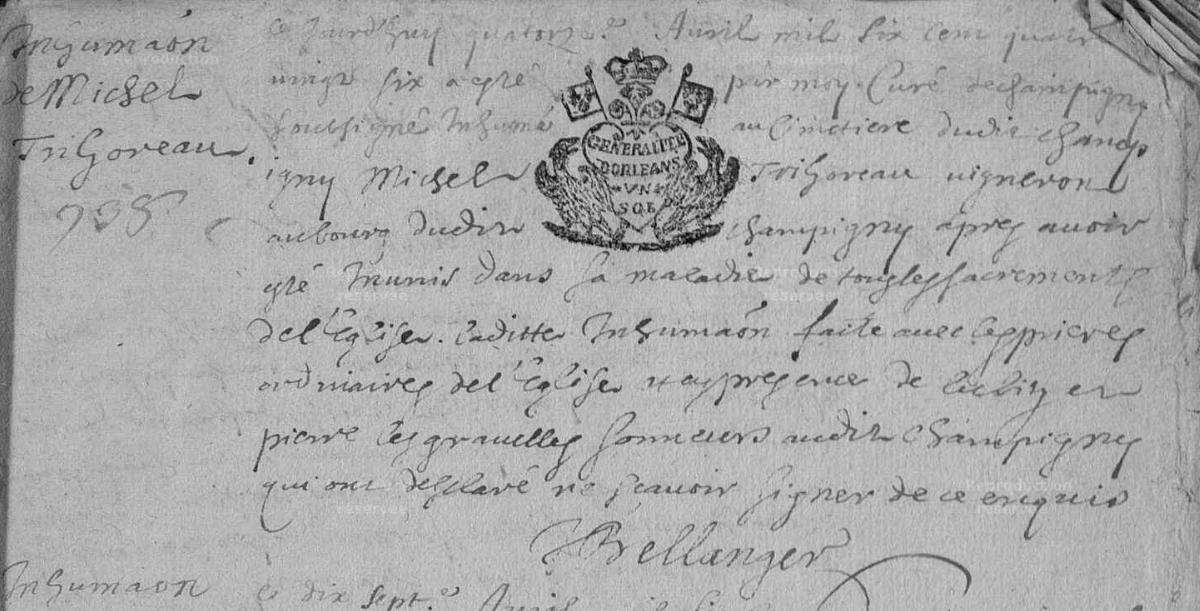 Inhumaon
de Michel
Trihoreau.
ce jourd'huy quatorze Avril mil six cent quatre
vingt six a esté par moy Curé de champigny
soubsigné Inhumé au Cimetiere dudit champ
igny Michel Trihoreau vigneron
au bourg dudit champigny apres avoir
esté munis dans sa maladie de tous les sacrements
de l'Eglise. laditte Inhumaon faite avec les prieres
ordinaires de l'Eglise presence de et
pierre les gravelles audit champigny
qui ont desclaré ne scavoir signer de ce enquis
Bellanger
GENERALITE
DORLEANS
VN
SOL
Inhumaon
ce dix sept.e Avril